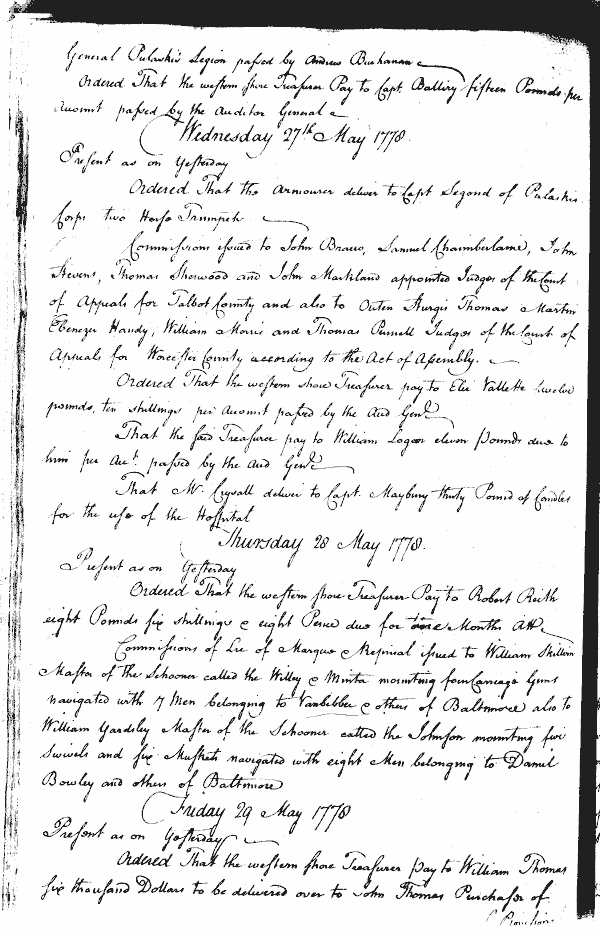 General Pulaskis Legion passed by Andrew Buchanan
Ordered That the western shore Treasurer Pay to Capt. Balliry fifteen Pounds per
Account passed by the Auditor General
Wednesday 27th May 1778.
Present as on Yesterday
Ordered That the Armourer deliver to Capt Segond of Pulaskis
Corps two Horse Trumpets
Commissions issued to John Bracco, Samuel Chamberlaine, John
Stevens, Thomas Sherwood and John Markland appointed Judges of the Court
of Appeals for Talbot County and also to Outen Sturgis Thomas Martin
Ebenezer Handy, William Morris and Thomas Purnell Judges of the Court of
Appeals for Worcester County according to the Act of Assembly.
Ordered That the western shore Treasurer pay to Elie Vallette twelve
pounds, ten shillings per Account passed by the Aud Genl
That the said Treasurer pay to William Logan eleven pounds due to
him per Acct. passed by the Aud Genl
That Mr Crysall deliver to Capt. Maybury thirty Pound of Candles
for the use of the Hospital
Thursday 28 May 1778.
Present as on Yesterday
Ordered That the western shore Treasurer Pay to Robert Reith
eight Pounds six shillings & eight Pence due for one Months
Commissions of Lre of Marque & Reprisal issued to William Skillin
Master of the Schooner called the Willey & Minta mounting four Carriage Guns
navigated with 7 Men belonging to Vanbibber & others of Baltimore also to
William Yardsley Master of the Schooner called the Johnson mounting five
Swivels and six Muskets navigated with eight Men belonging to Daniel
Bowley and others of Baltimore
Friday 29 May 1778
Present as on Yesterday
Ordered That the western shore Treasurer pay to William Thomas
six thousand Dollars to be delivered over to John Thomas Purchaser of
Provision